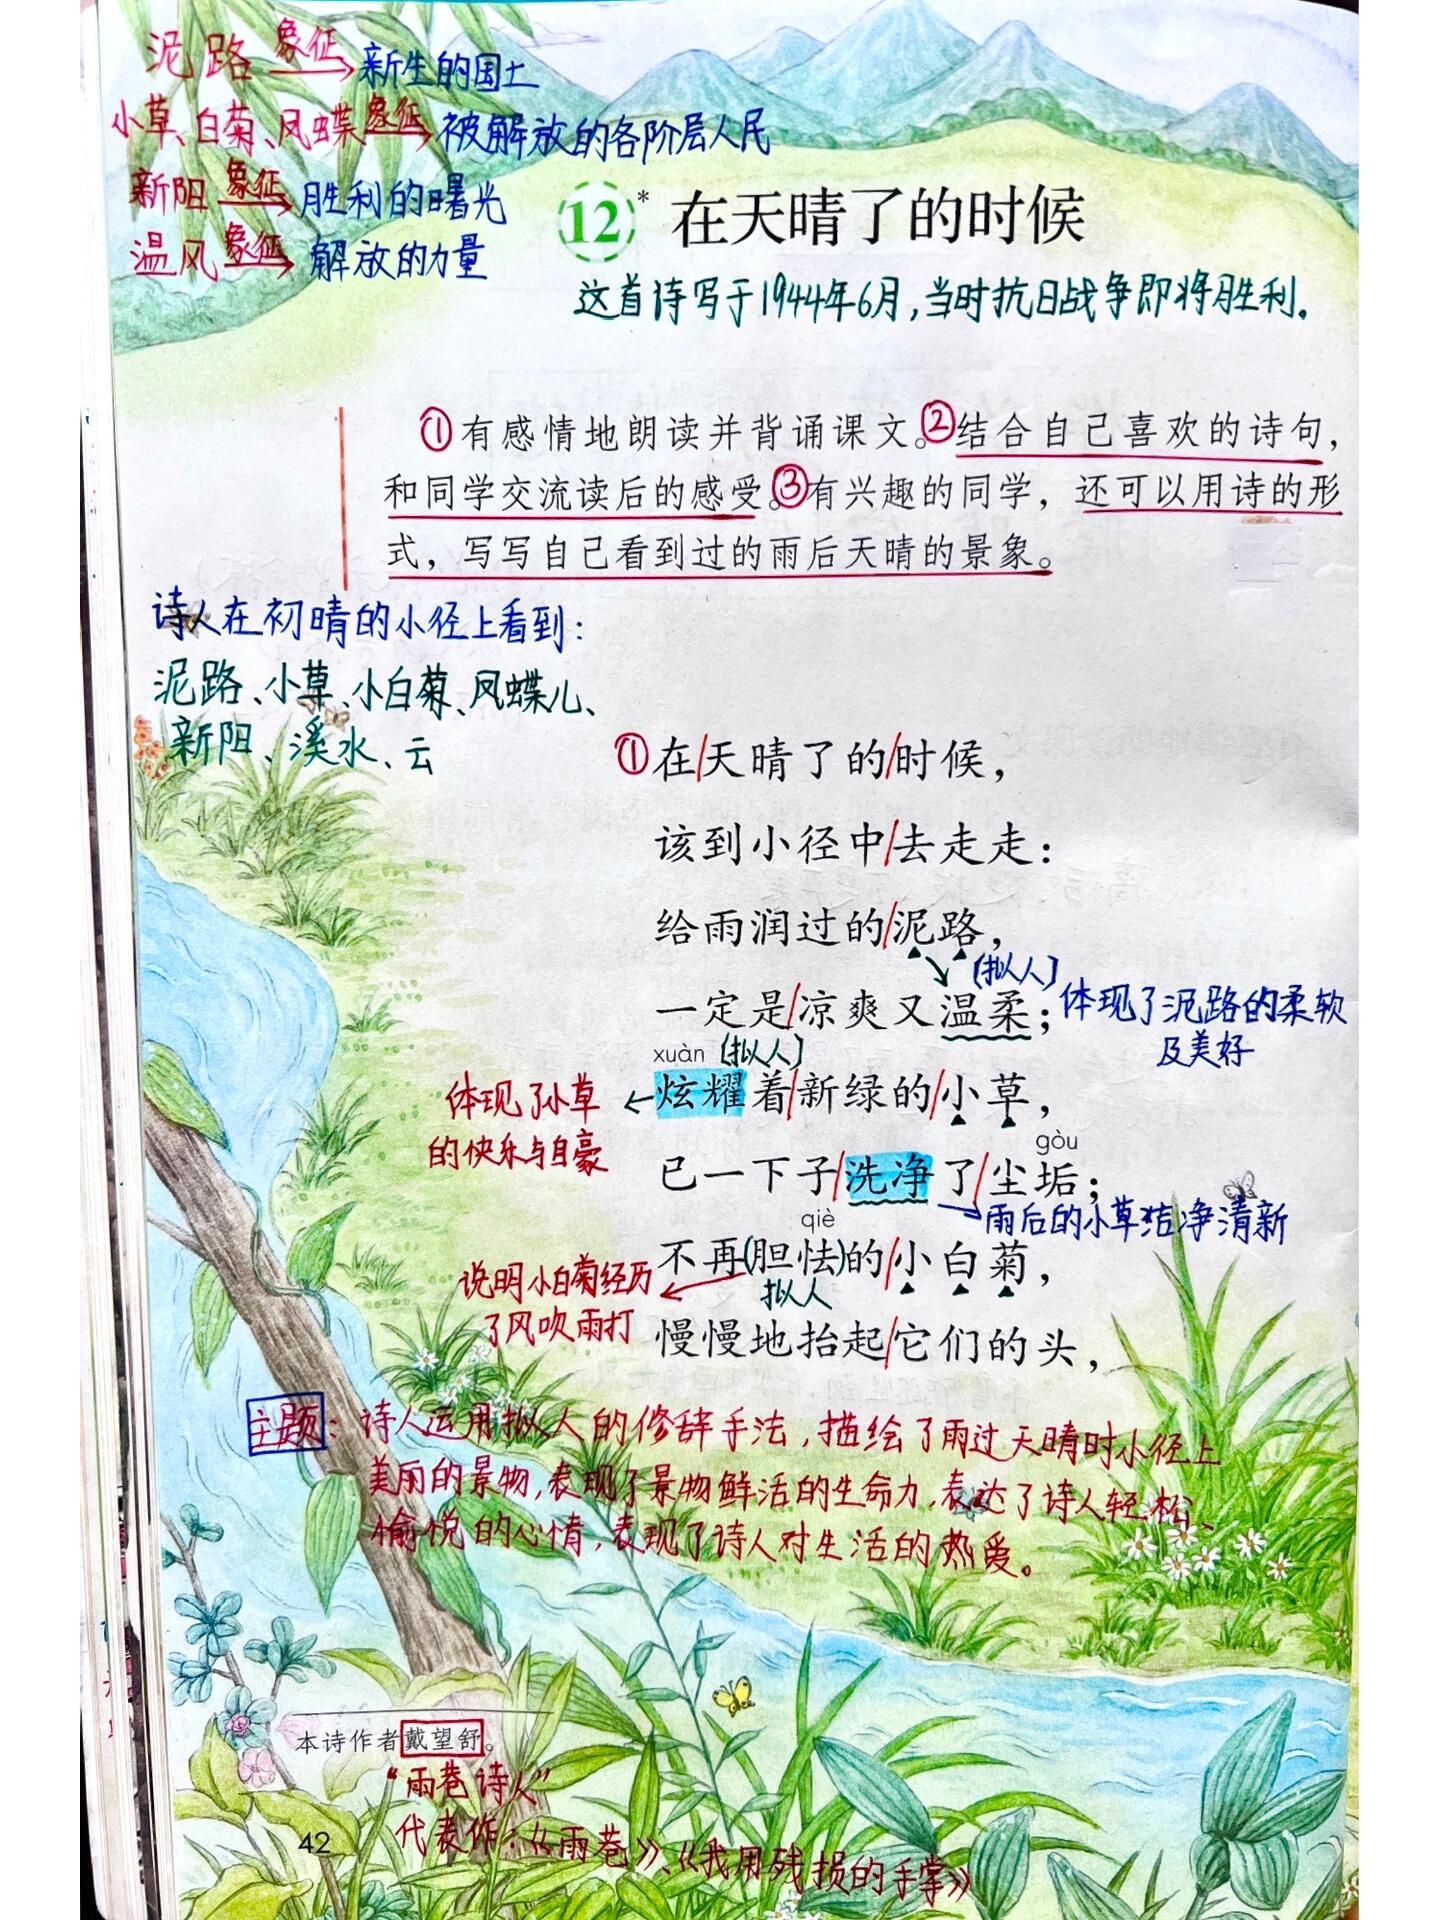 泥路 象征 新生的国土
小草、白菊、凤蝶 象征 被解放的各阶层人民
新阳 象征 胜利的曙光
温风 象征 解放的力量
12* 在天晴了的时候
这首诗写于1944年6月,当时抗日战争即将胜利.
①有感情地朗读并背诵课文。②结合自己喜欢的诗句，
和同学交流读后的感受。③有兴趣的同学，还可以用诗的形
式，写写自己看到过的雨后天晴的景象。
诗人在初晴的小径上看到:
泥路、小草、小白菊、凤蝶儿、
新阳、溪水、云
①在/天晴了的/时候，
该到小径中/去走走：
给雨润过的/泥路，
(拟人)
一定是/凉爽又温柔；
体现了泥路的柔软
及美好
xuàn (拟人)
炫耀着/新绿的/小草，
体现了小草
的快乐与自豪
gòu
已一下子/洗净了/尘垢；
雨后的小草洁净清新
qiè
不再(胆怯)的/小白菊，
拟人
说明小白菊经历
了风吹雨打
慢慢地抬起/它们的头，
主题: 诗人运用拟人的修辞手法,描绘了雨过天晴时小径上
美丽的景物,表现了景物鲜活的生命力,表达了诗人轻松、
愉悦的心情,表现了诗人对生活的热爱。
本诗作者戴望舒。
“雨巷诗人”
代表作:《雨巷》、《我用残损的手掌》
42